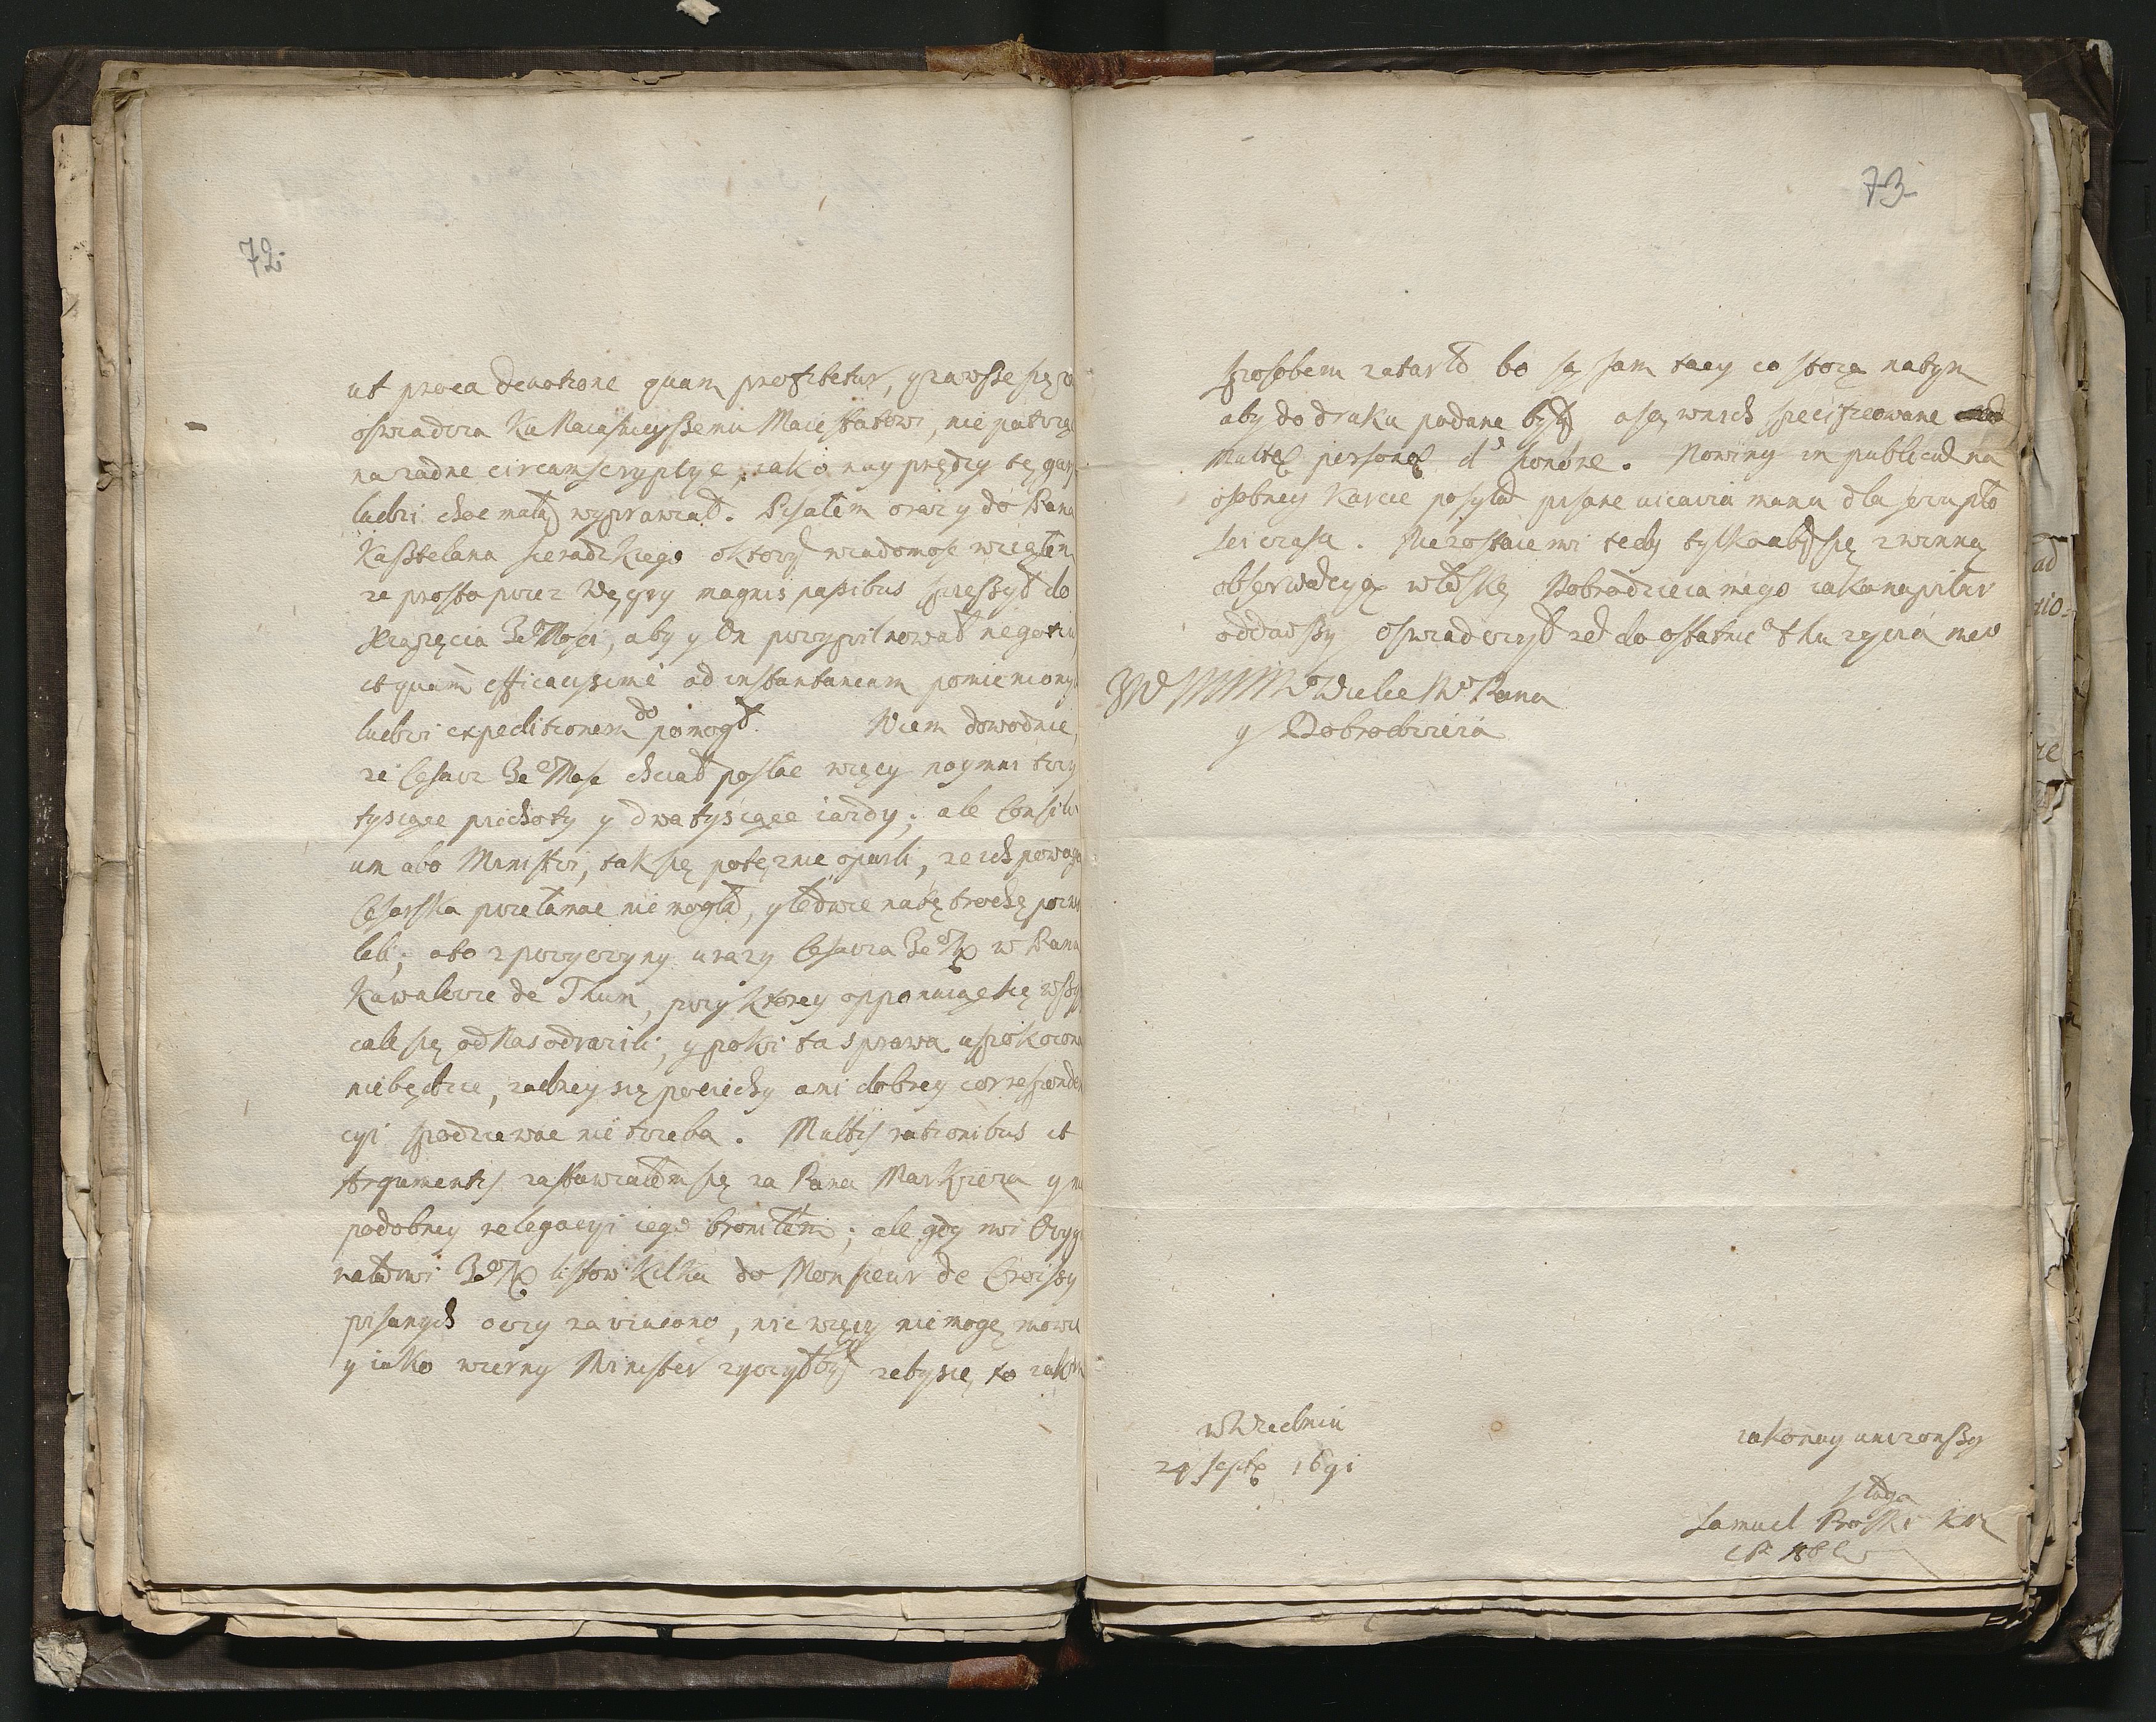 72.
ut pro ea devotione quam profitetur, y zawsze się
oswiadcza Ku Naiasnieyszemu Maiestatowi, nie patrząc
na zadne circumscryptye, iako nay prędzey tę garsc
ludzi choc małą wyprawiał. Pisałem oraz y do Pana
Kasztelana Sieradzkiego o ktorym wiadomosc wziąłem
ze prosto przez Węgry magnis passibus spieszył do
Xiązęcia Je Mosci, aby y On przypilnował negotium
et quam efficacissime ad instantaneam pomienionych
ludzi expeditionem do pomogł. Wiem dowodnie,
ze Cesarz Je Mosc chciał posłac więcy naymni trzy
tysiące piechoty y dwa tysiące iazdy; ale Consili
um abo Ministri, tak się potęznie oparli, ze ich powaga
Cesarska przełamac nie mogła, y ledwie na tę trochę pozwo
lili; a to z przyczyny urazy Cesarza Je Mci w Panu
Kawalerze de Thun, przy ktorey opponuiąc się wszyscy
cale się od Nas odrazili, y poki ta sprawa uspokoiona
niebędzie, zadney się pociechy ani dobrey corresponden
cyi spodziewac nie trzeba. Multis rationibus et
Argumentis zastawiałem się za Pana Markiza y nie
podobney relegacyi iego broniłem; ale gdy mi Orygi
nałami Je Mci listow kilku do Monsieur de Croissy
pisanych oczy zarzucono, nic więcy nie mogę mowic
y iako wierny Minister zyczyłbym zeby się to iakim
73.
sposobem zatarło bo są sam tacy co stoią na tym
aby do druku podane były a są w nich specificowane
multae personae et honore. Nowiny in publicis na
osobney karcie posyłam pisane vicaria manu dla szczupło
sci czasu. Nie zostaie mi tedy tylko abym się z winną
obserwancyą w łaskę Dobrodzieia mego iako napilniey
oddawszy oswiadczył zem do ostatnie tchu zycia mego
WMMMo Wielce Mo Pana
y Dobrodzieia
w Wiedniu
24 Sept 1691
zakonny unizonszy
sługa
Samuel Proski